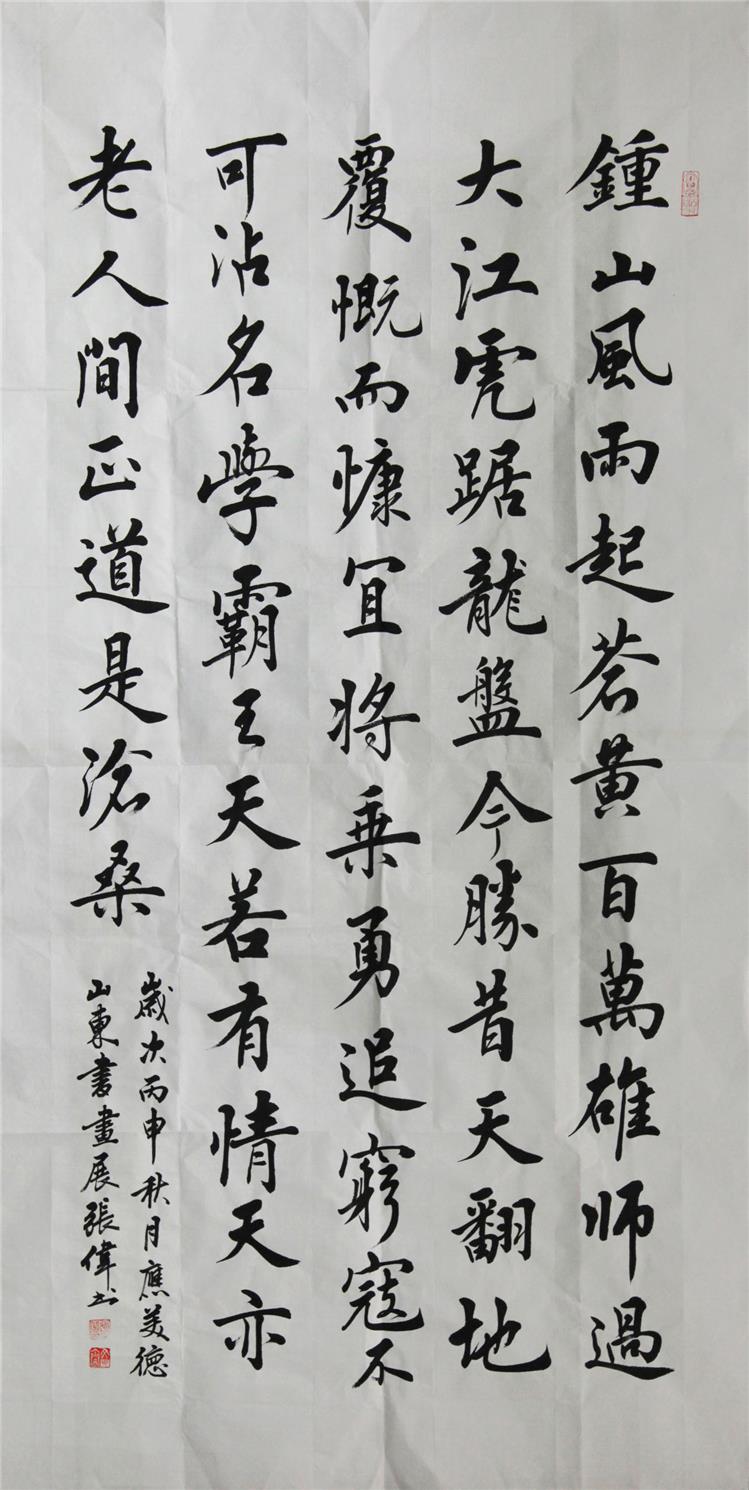 鍾山風雨起蒼黃百萬雄師過
大江虎踞龍盤今勝昔天翻地
覆慨而慷宜將乘勇追窮寇不
可沽名學霸王天若有情天亦
老人間正道是滄桑
歲次丙申秋月應美德
山東書畫展張偉书